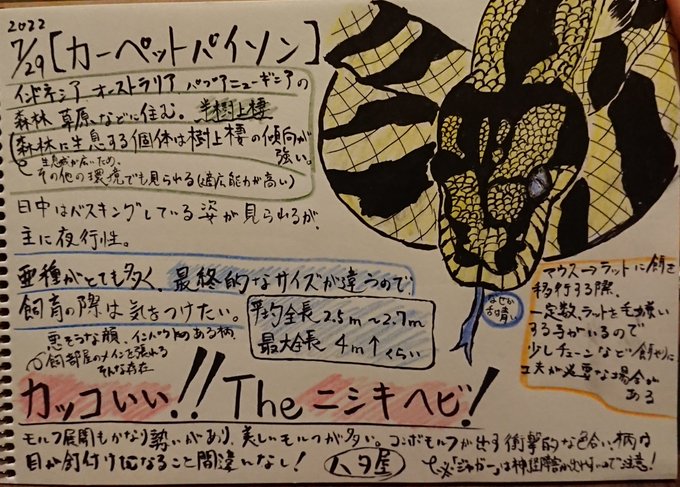 2022
7/29 [カーペットパイソン]
インドネシア オーストラリア パプアニューギニアの
森林 草原などに住む。 半樹上棲
(森林に生息する個体は樹上棲の傾向が
強い。
生息域が広いため、
その他の環境でも見られる(適応能力が高い)
日中はバスキングしている姿が見られるが、
主に夜行性。
亜種がとても多く、最終的なサイズが違うので
飼育の際は気をつけたい。
平均全長 2.5m~2.7m
最大全長 4m↑くらい
悪そうな顔、インパクトのある柄
飼育部屋のメインを張れる
そんな存在
なぜか
青
マウス→ラットに餌を
移行する際、
一定数、ラットを毛嫌い
する子がいるので
少しチェーンなど
工夫が必要な場合が
ある
カッコいい!! The ニシキヘビ!
モルフ展開もかなり勢いがあり、美しいモルフが多い。コンボモルフが出す衝撃的な色合い、柄は
目が釘付けになること間違いなし!
八夕屋
※「ジャガー」は神経障害が出やすいので注意!